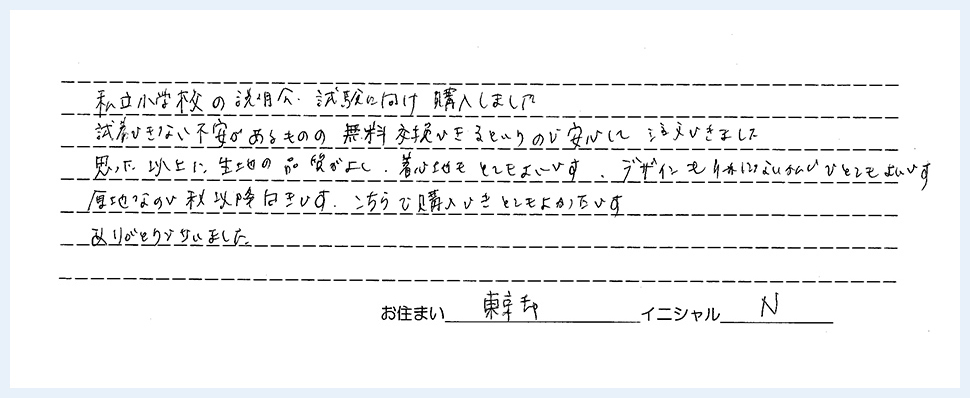 私立小学校の説明会・試験に向け 購入しました
試着できない不安があるものの 無料交換できるというので安心して 注文できました
思った以上に 生地の品質がよく、着心地も とてもよいです、デザインも りな かんじで とてもよいです
厚地なので 秋以降向きです、こちらで購入できとてもよかったです
ありがとうございました
お住まい 東京都 イニシャル N